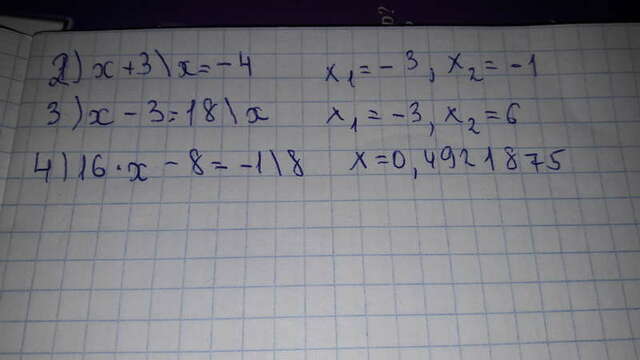 2) x+3\x=-4 x₁=-3, x₂=-1
3) x-3=18\x x₁=-3, x₂=6
4) 16·x-8=-1\8 x=0,4921875